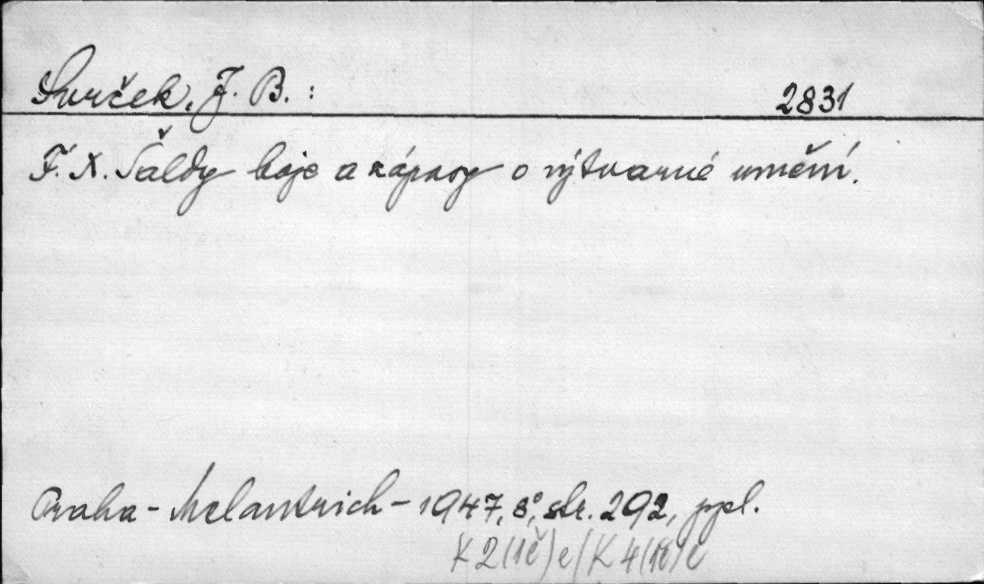 Svrček, J. B. : 2831
F. X. Šaldy boje a zápasy o výtvarné umění.
Praha - Melantrich - 1947, 8°, str. 292, ppl.
K2(1č)c/K4(1č)c